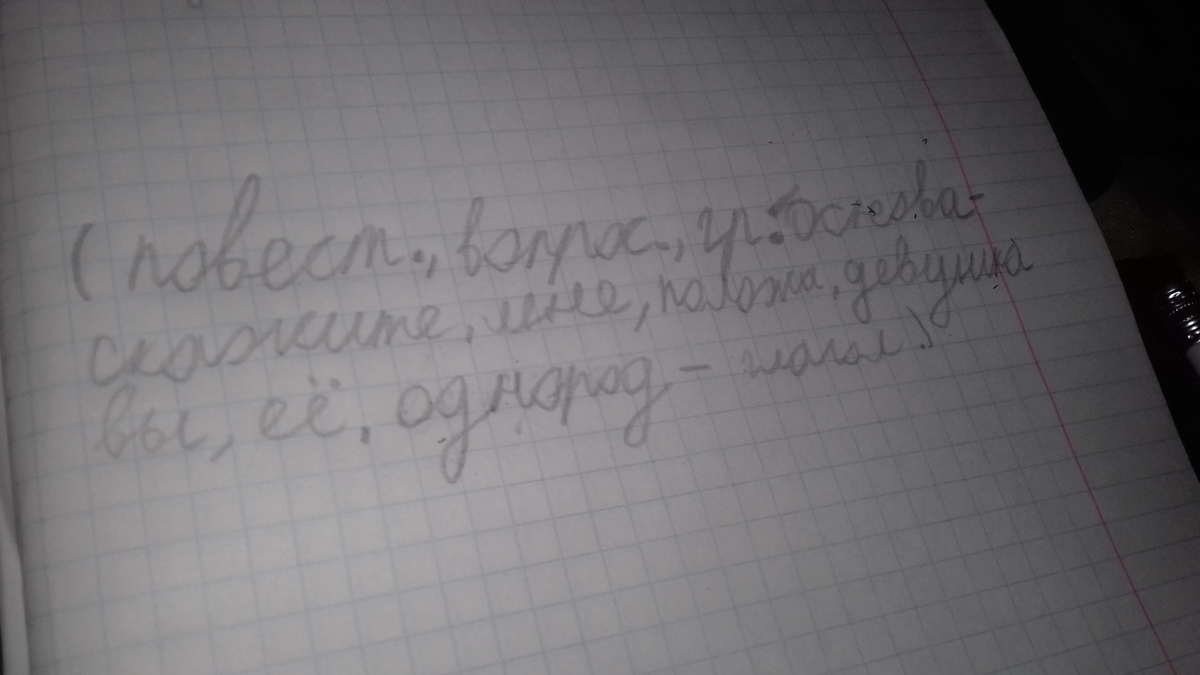 (повест., вопрос., гр. основа-
скажите, мне, положа, девушка
вы, её. однород, - глагол)